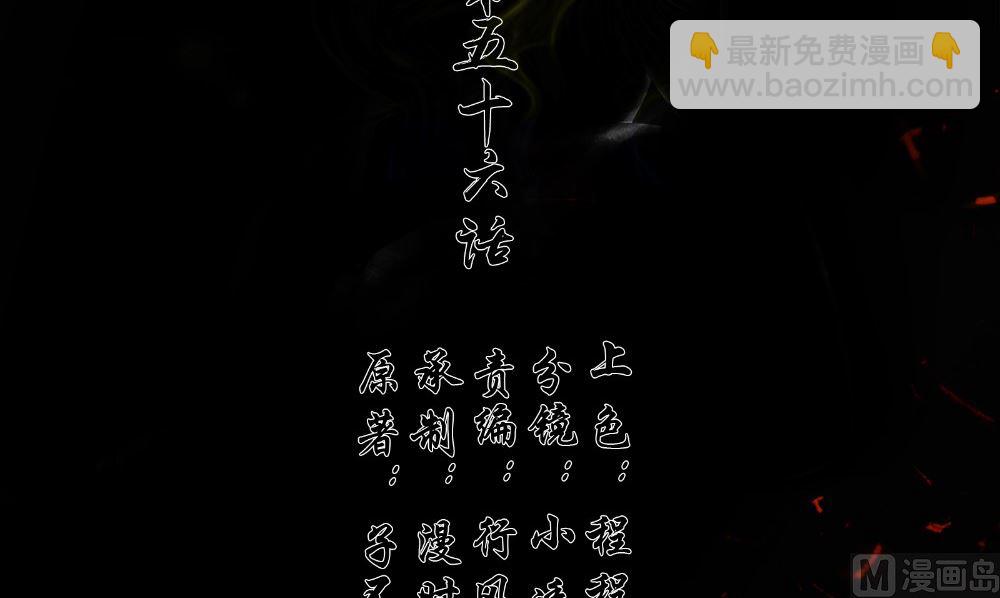 最新免费漫画
www.baozimh.com
第五十六话
原著：子
承制：漫
责编：行风
分镜：小
上色：程程
漫画岛